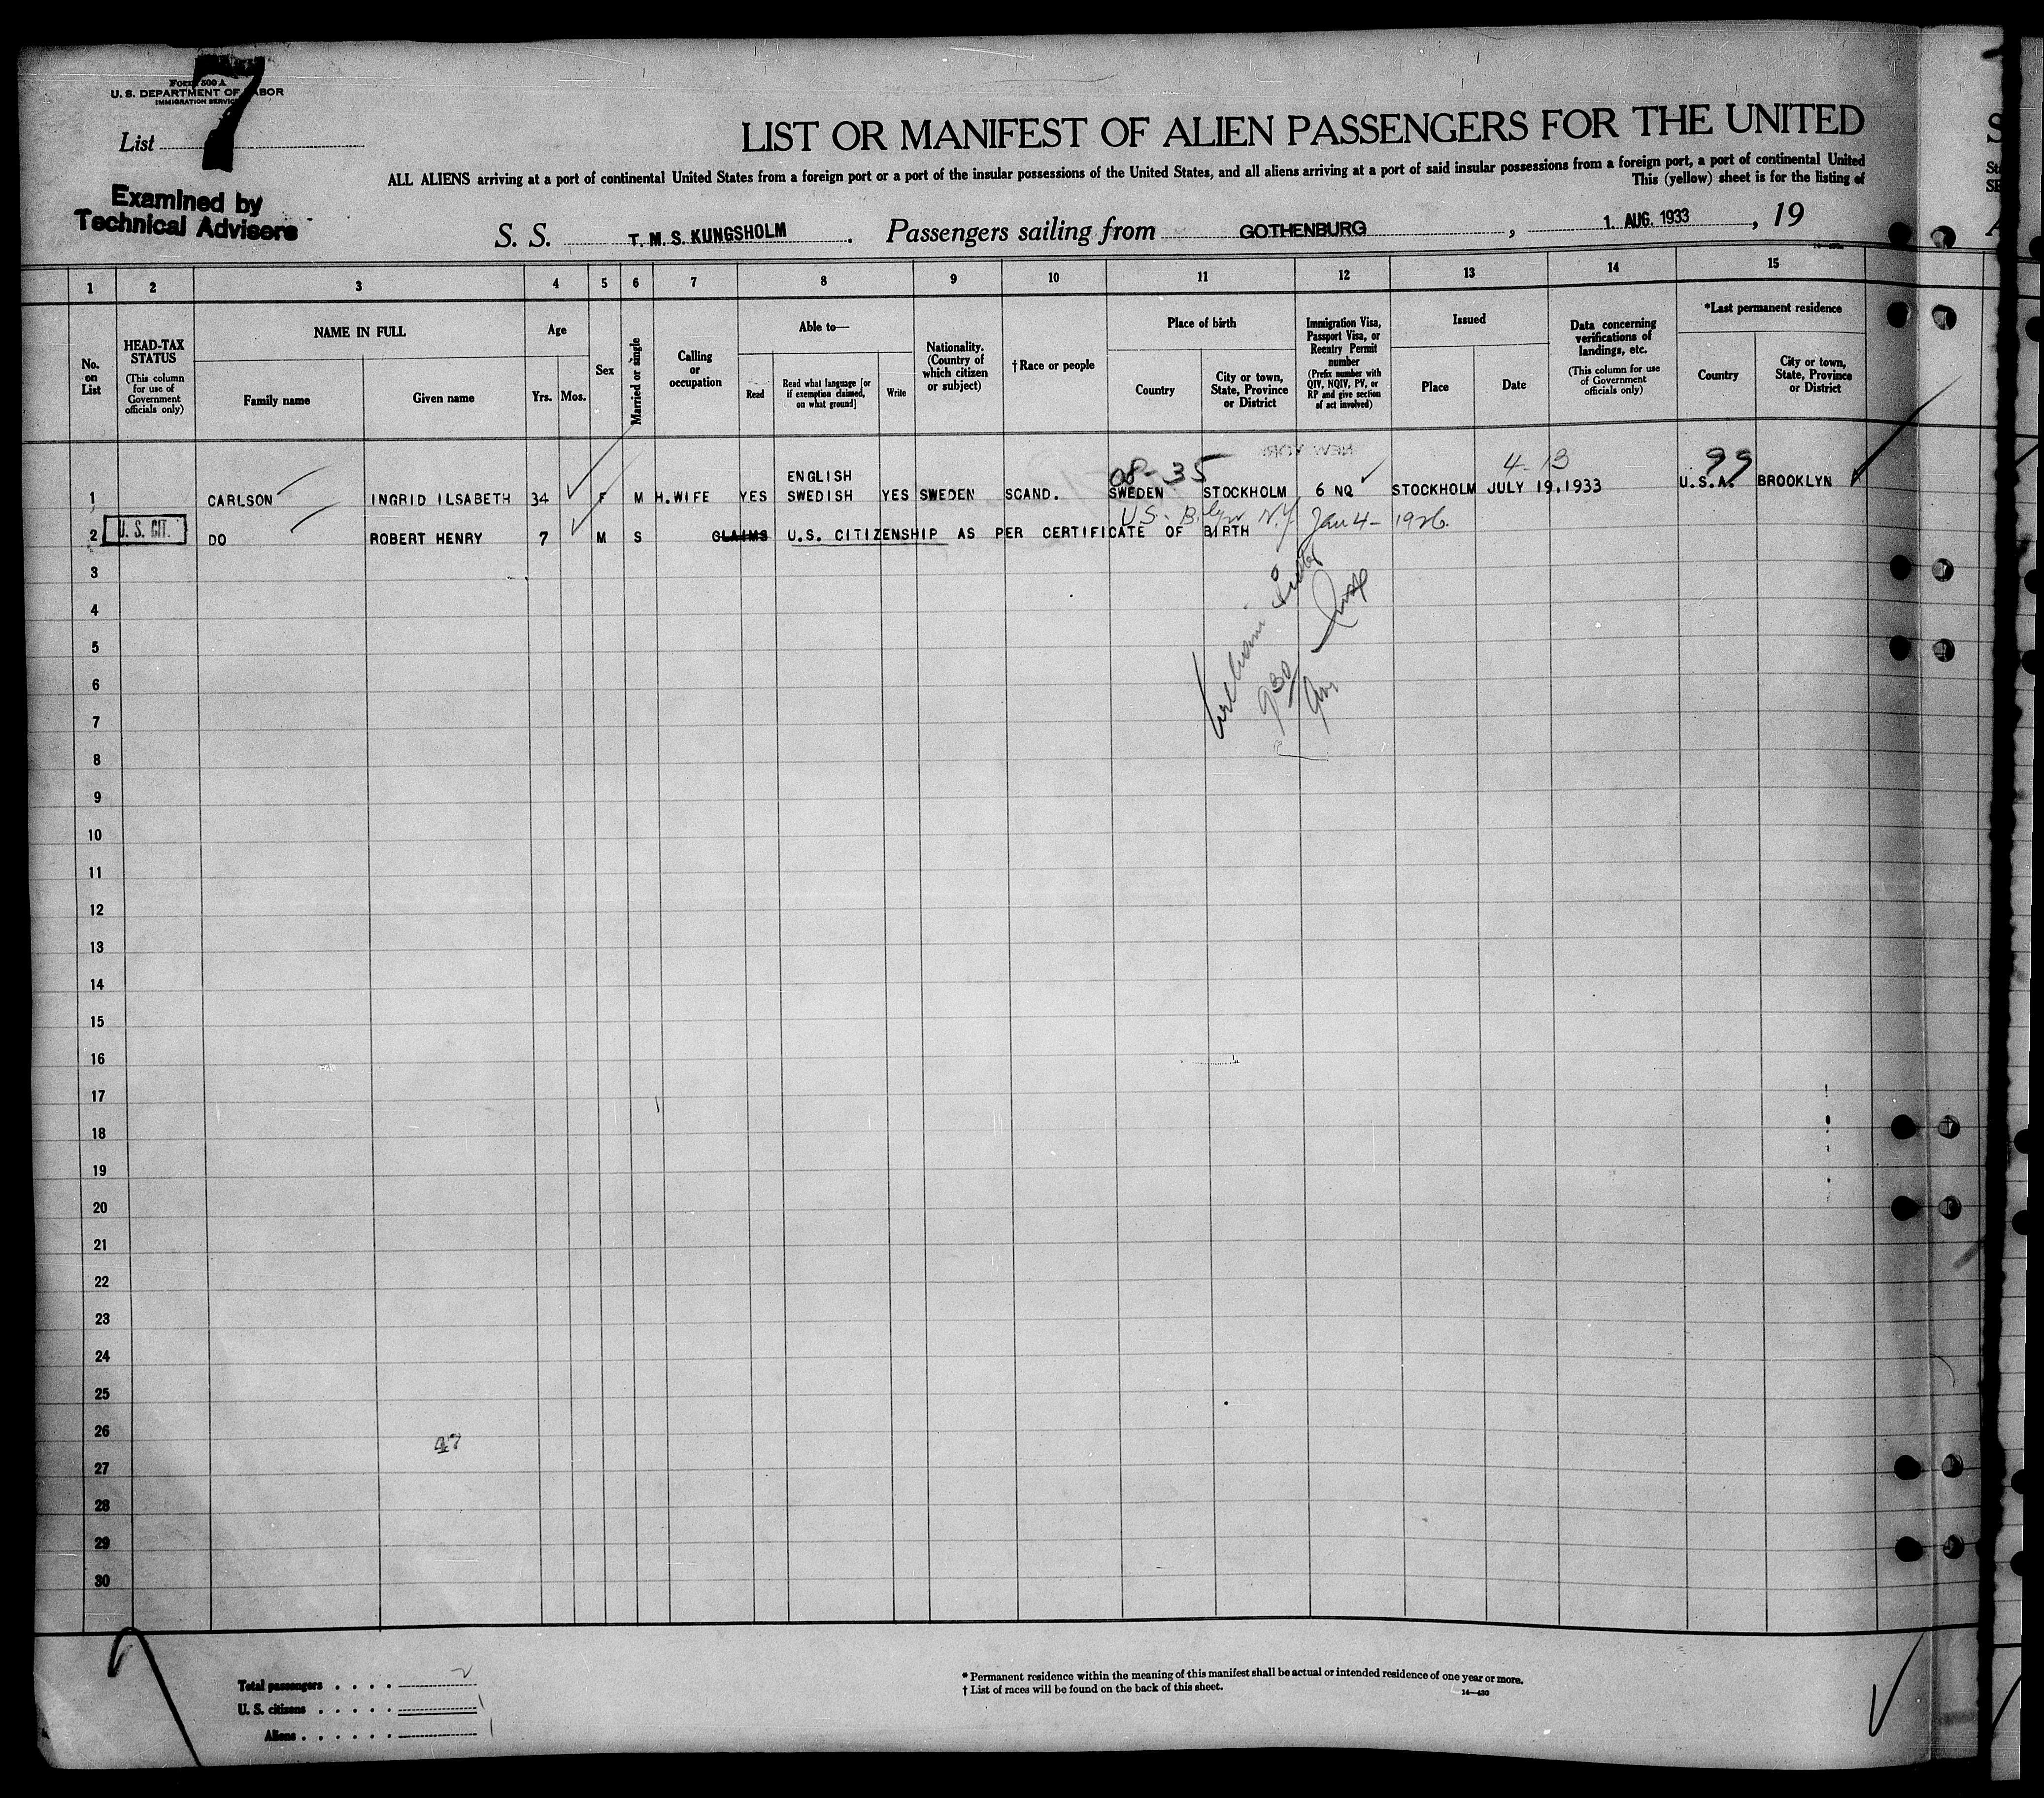 7
Form 500 A
U. S. DEPARTMENT OF LABOR
IMMIGRATION SERVICE
List
Examined by
Technical Advisers
LIST OR MANIFEST OF ALIEN PASSENGERS FOR THE UNITED
ALL ALIENS arriving at a port of continental United States from a foreign port or a port of the insular possessions of the United States, and all aliens arriving at a port of said insular possessions from a foreign port, a port of continental United
This (yellow) sheet is for the listing of
S. S. T. M. S. KUNGSHOLM . Passengers sailing from GOTHENBURG , 1. AUG. 1933 , 19
1 2 3 4 5 6 7 8 9 10 11 12 13 14 15
No. on List
HEAD-TAX STATUS
(This column for use of Government officials only)
NAME IN FULL
Family name
Given name
Age
Yrs.
Mos.
Sex
Married or single
Calling or occupation
Able to—
Read
Read what language [or if exemption claimed, on what ground]
Write
Nationality. (Country of which citizen or subject)
†Race or people
Place of birth
Country
City or town, State, Province or District
Immigration Visa, Passport Visa, or Reentry Permit number
(Prefix number with QIV, NQIV, PV, or RP and give section of act involved)
Issued
Place
Date
Data concerning verifications of landings, etc.
(This column for use of Government officials only)
*Last permanent residence
Country
City or town, State, Province or District
NEW YORK
08-35 4-13 99
ENGLISH
1 CARLSON INGRID ILSABETH 34 F M H.WIFE YES SWEDISH YES SWEDEN SCAND. SWEDEN STOCKHOLM 6 NQ STOCKHOLM JULY 19.1933 U.S.A. BROOKLYN
U.S. Bklyn N.Y. Jan 4- 1926.
2 U. S. CIT. DO ROBERT HENRY 7 M S CLAIMS U.S. CITIZENSHIP AS PER CERTIFICATE OF BIRTH
3
4
5
6
930
7
8
9
10
11
12
13
14
15
16
17
18
19
20
21
22
23
24
25
26
47
27
28
29
30
Total passengers . . . . 2
U. S. citizens . . . . . 1
Aliens . . . . . . 1
* Permanent residence within the meaning of this manifest shall be actual or intended residence of one year or more.
† List of races will be found on the back of this sheet.
14—430